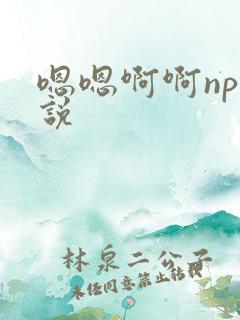 嗯嗯啊啊np
説
林泉二公子
未经同意禁止转载